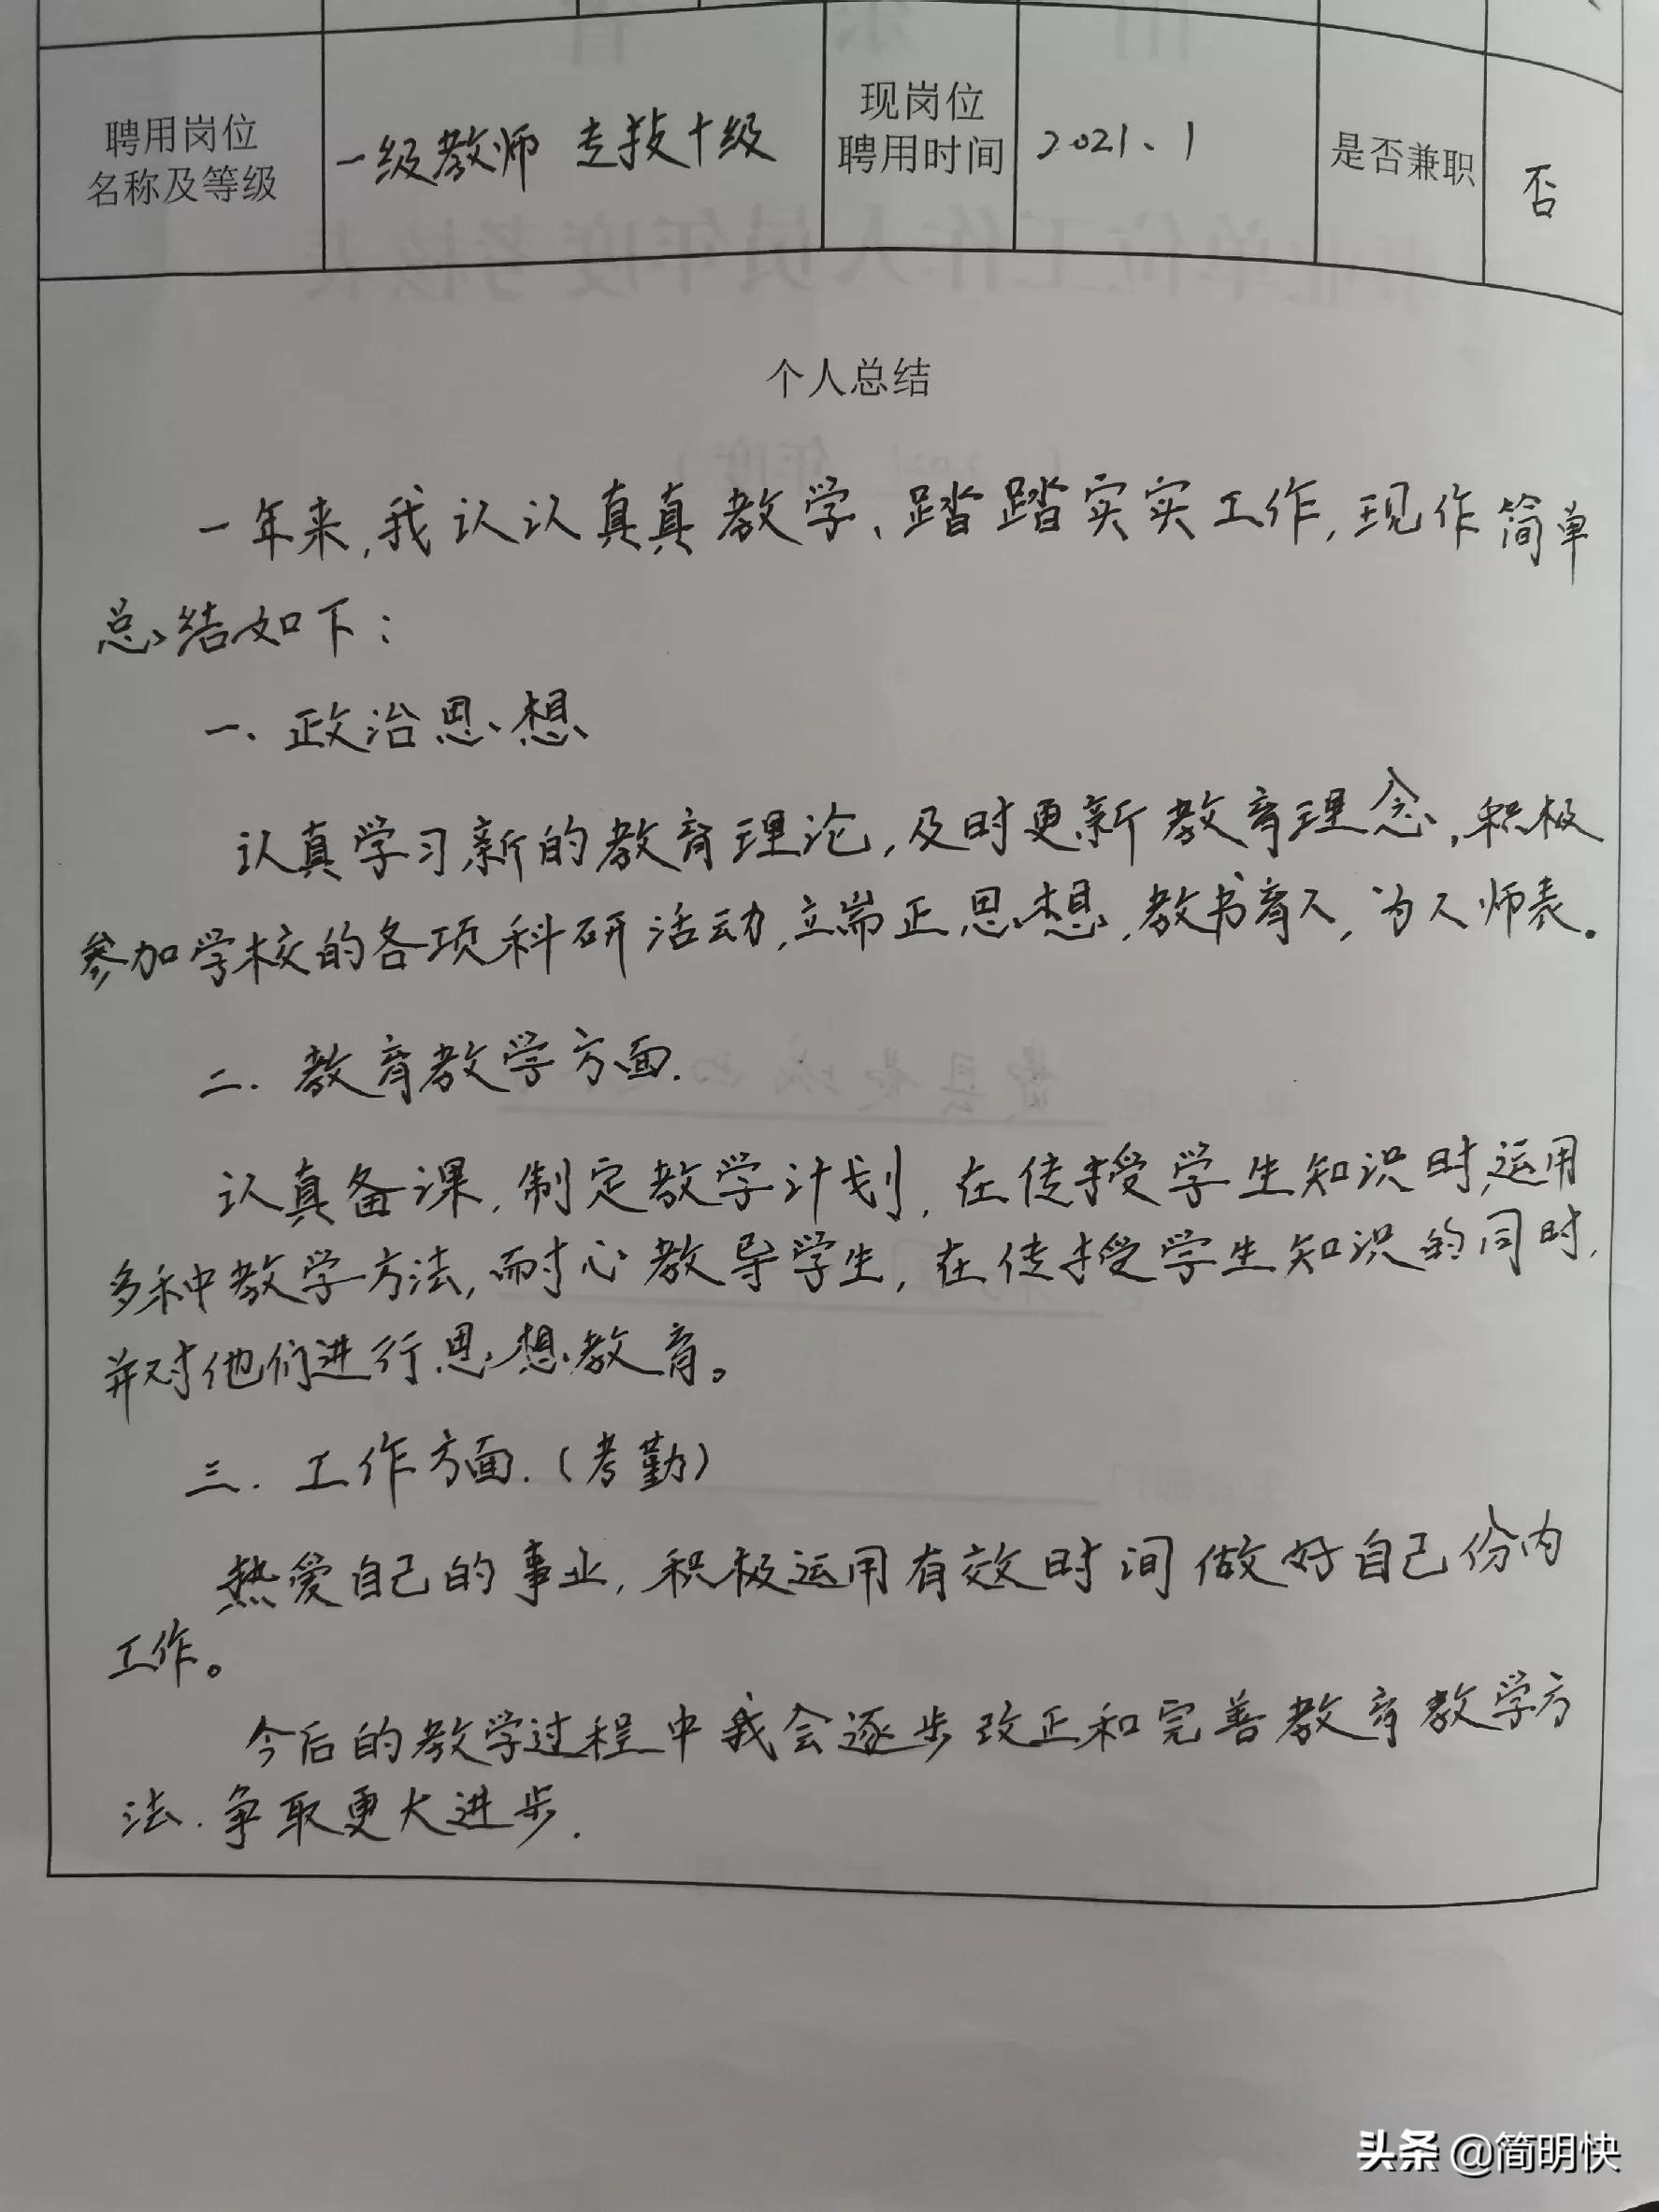 聘用岗位
名称及等级
一级教师 专技十级
现岗位
聘用时间
2021、1
是否兼职
否
个人总结
一年来,我认认真真教学、踏踏实实工作,现作简单
总结如下:
一、政治思想
认真学习新的教育理论,及时更新教育理念,积极
参加学校的各项科研活动,立端正思想,教书育人,为人师表。
二.教育教学方面.
认真备课,制定教学计划,在传授学生知识时,运用
多种教学方法,耐心教导学生,在传授学生知识的同时,
并对他们进行思想教育。
三.工作方面.(考勤)
热爱自己的事业,积极运用有效时间做好自己份内
工作。
今后的教学过程中我会逐步改正和完善教育教学方
法.争取更大进步.
头条 @简明快